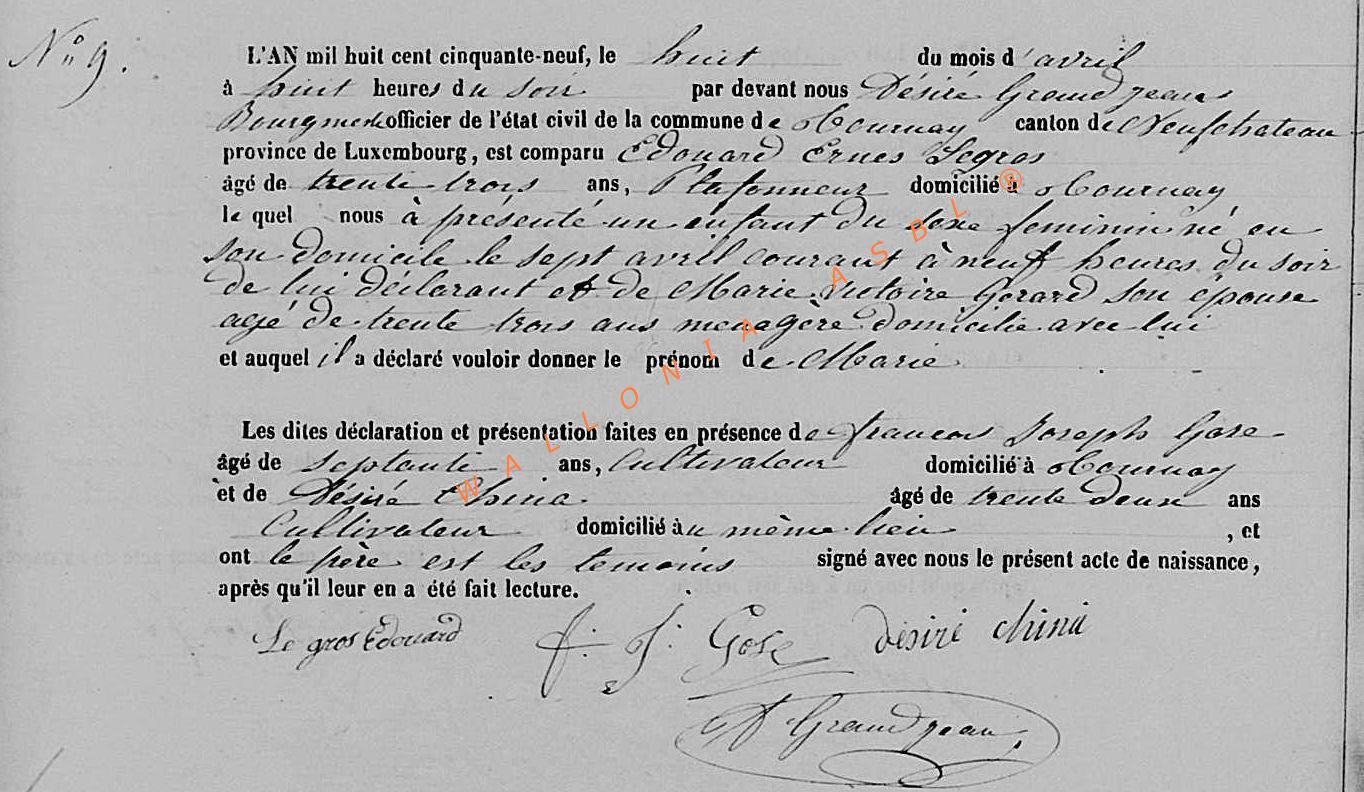 N° 9.
L'AN mil huit cent cinquante-neuf, le huit du mois d'avril
à huit heures du soir par devant nous Désiré Grandjean
Bourgmestre officier de l'état civil de la commune de Tournay canton de Neufchateau
province de Luxembourg, est comparu Edouard Ernes Legros
âgé de trente trois ans, Plafonneur domicilié à Tournay
le quel nous à présenté un enfant du sexe feminin né en
son domicile le sept avril courant à neuf heures du soir
de lui déclarant et de Marie Victoire Gerard son épouse
agé de trente trois ans menagère domicilie avec lui
et auquel il a déclaré vouloir donner le prénom de Marie
Les dites déclaration et présentation faites en présence de francois Joseph Gose
âgé de septante ans, Cultivateur domicilié à Tournay
et de Désiré China âgé de trente deux ans
Cultivateur domicilié au même lieu, et
ont le père est les temoins signé avec nous le présent acte de naissance,
après qu'il leur en a été fait lecture.
Le gros Edouard f. J. Gose désiré china
D Grandjean
WALLONIA ASBL ®